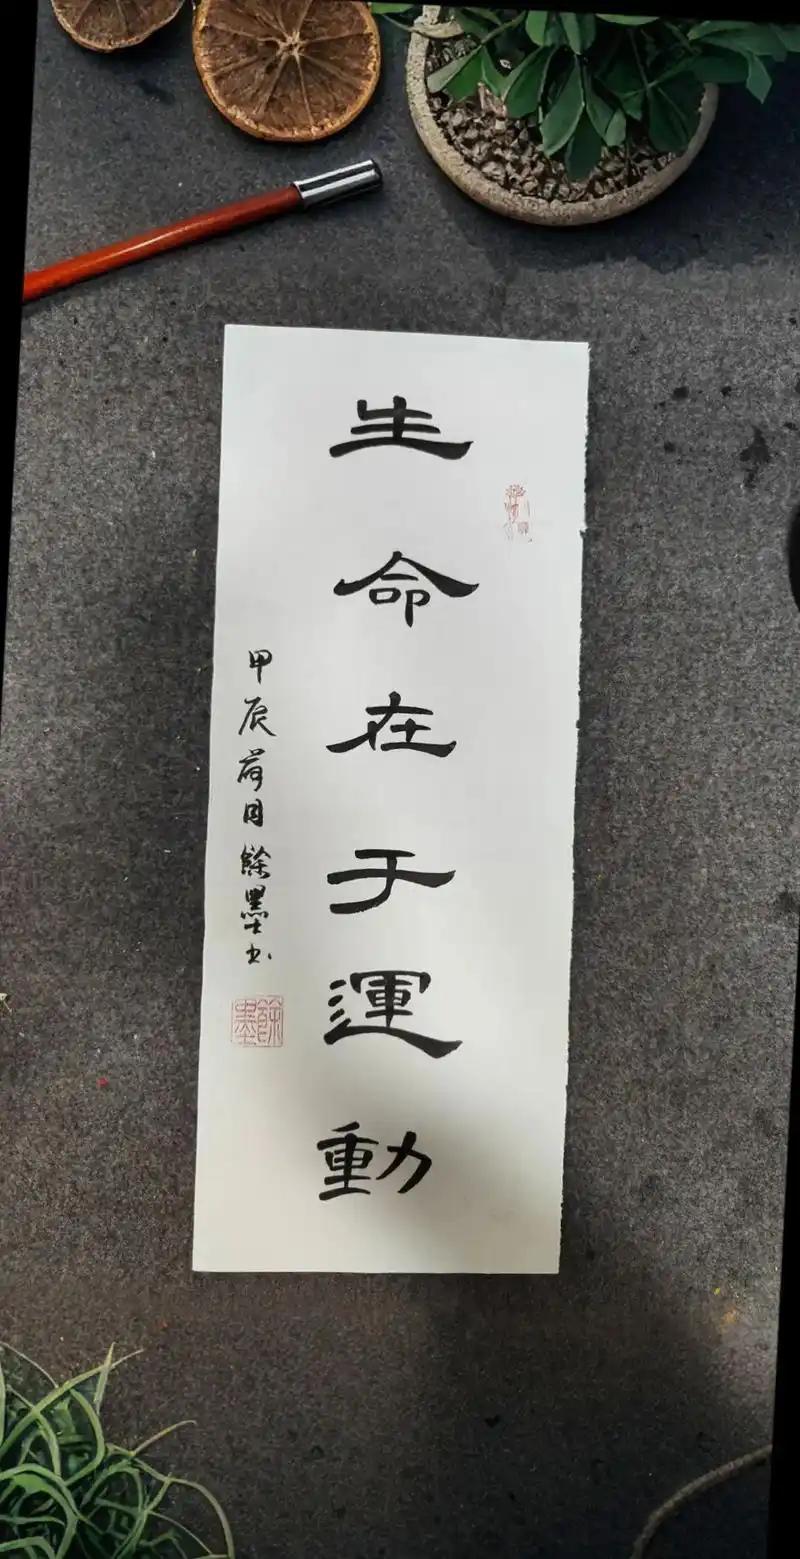 生命在于運動
甲辰荷月餘墨书
餘墨